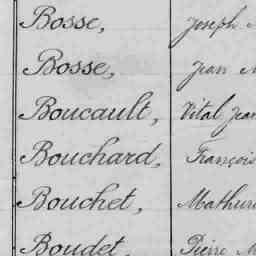 Bosse, Joseph
Bosse, Jean
Boucault, Vital Jean
Bouchard, François
Bouchet, Mathuri
Boudet, Pierre